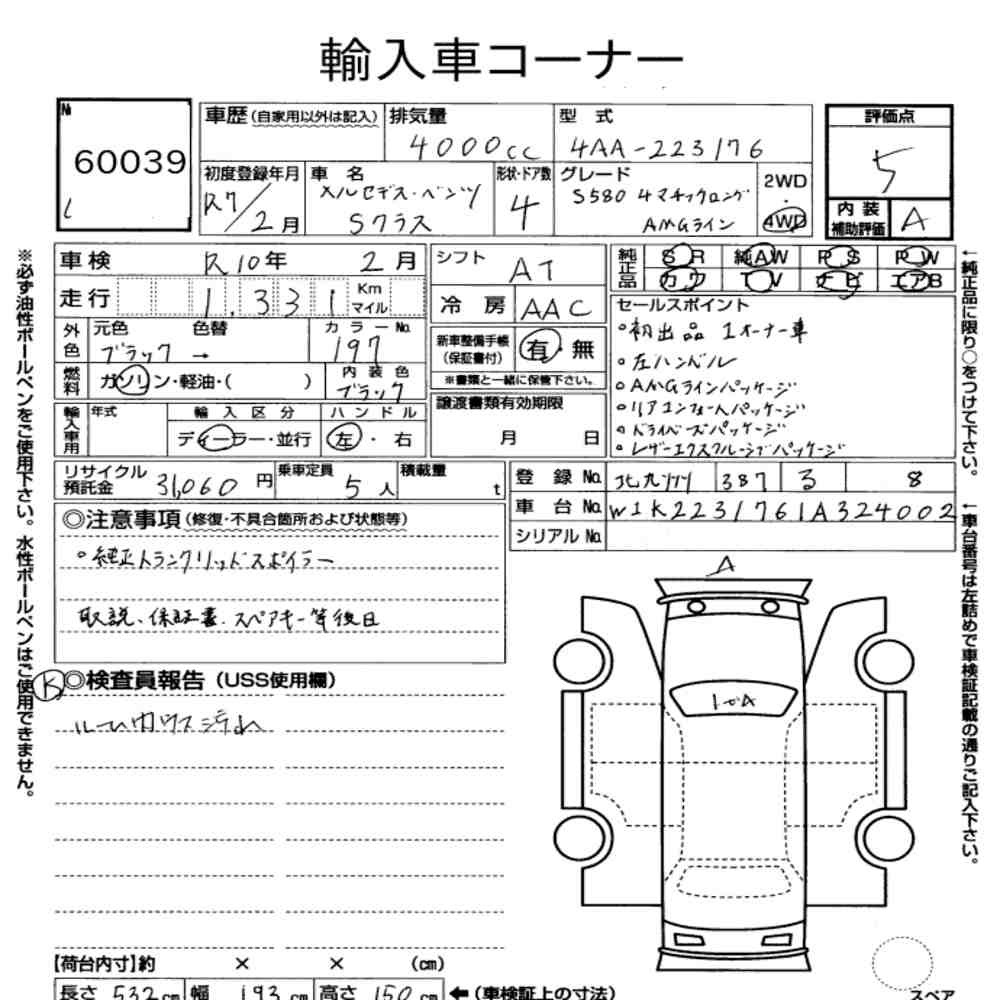 輸入車コーナー
№ 60039
車歴(自家用以外は記入) 排気量 4000cc 型式 4AA-223176
評価点 5
初度登録年月 R7/2月 車名 メルセデス・ベンツ Sクラス 形状・ドア数 4 グレード S580 4マチックロング AMGライン 2WD・4WD
内装補助評価 A
車検 R10年 2月
走行 1,331 Km マイル
外色 元色 ブラック → 色替 カラーNo. 197
燃料 ガソリン・軽油・( ) 内装色 ブラック
輸入車用 年式 輸入区分 ディーラー・並行 ハンドル 左・右
シフト AT
冷房 AAC
新車整備手帳(保証書付) 有・無
※書類と一緒に保管下さい。
譲渡書類有効期限
月 日
純正品 SR 純AW PS PW
カワ TV ナビ エアB
セールスポイント
○初出品 1オーナー車
○左ハンドル
○AMGラインパッケージ
○リアコンフォートパッケージ
○ドライバーズパッケージ
○レザーエクスクルーシブパッケージ
リサイクル預託金 31,060円 乗車定員 5人 積載量 t
登録No. 北九州 387 る 8
車台No. W1K2231761A324002
シリアルNo.
◎注意事項(修復・不具合箇所および状態等)
○純正トランクリッドスポイラー
取説、保証書、スペアキー等後日
K ◎検査員報告(USS使用欄)
ルーム内ウス汚れ
A
トビA
【荷台内寸】約 × × (cm)
長さ 532cm 幅 193cm 高さ 150cm ←(車検証上の寸法)
スペア
※必ず油性ボールペンをご使用下さい。水性ボールペンはご使用できません。
←純正品に限り○をつけて下さい。
←車台番号は左詰めで車検証記載の通りご記入下さい。